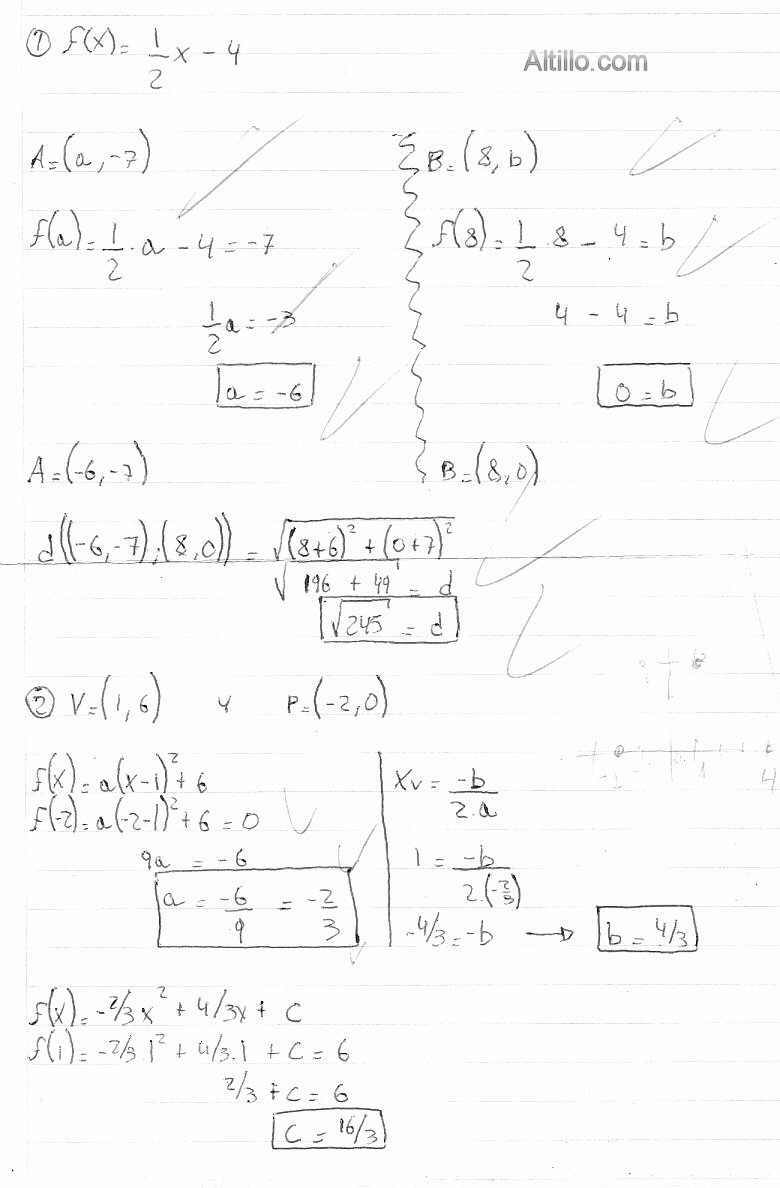 ① f(x) = 1/2 x - 4
Altillo.com
A = (a, -7)
f(a) = 1/2 · a - 4 = -7
1/2 a = -3
a = -6
A = (-6, -7)
B = (8, b)
f(8) = 1/2 · 8 - 4 = b
4 - 4 = b
0 = b
B = (8, 0)
d((-6, -7); (8, 0)) = √((8+6)² + (0+7)²)
√(196 + 49) = d
√245 = d
② V = (1, 6) y P = (-2, 0)
f(x) = a(x-1)² + 6
f(-2) = a(-2-1)² + 6 = 0
9a = -6
a = -6/9 = -2/3
Xv = -b/2.a
1 = -b/2.(-2/3)
-4/3 = -b → b = 4/3
f(x) = -2/3 x² + 4/3 x + C
f(1) = -2/3 1² + 4/3 . 1 + C = 6
2/3 + C = 6
C = 16/3